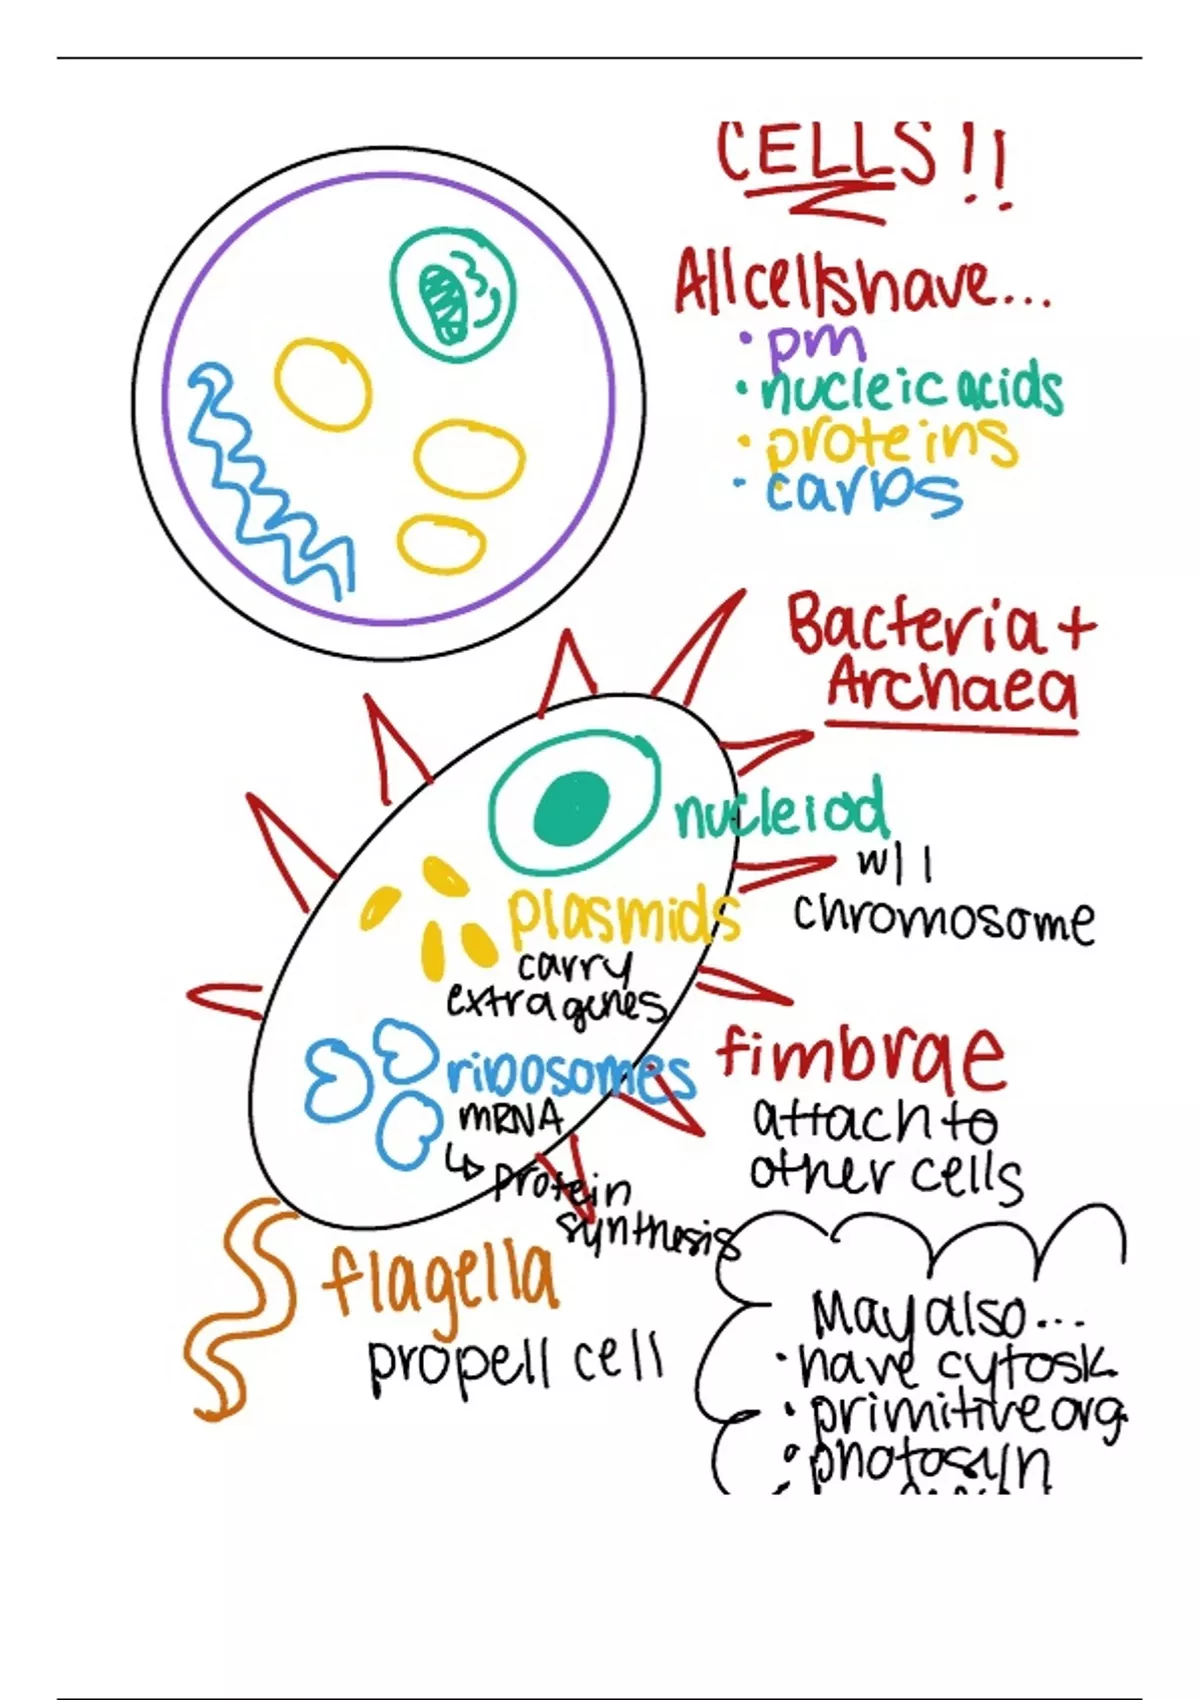 CELLS!!
All cells have...
• pm
• nucleic acids
• proteins
• carbs
Bacteria +
Archaea
nucleiod
w/ 1
chromosome
plasmids
carry
extra genes
ribosomes
mRNA
↳ protein
synthesis
fimbrae
attach to
other cells
flagella
propell cell
May also...
• have cytosk.
• primitive org.
• photosyn